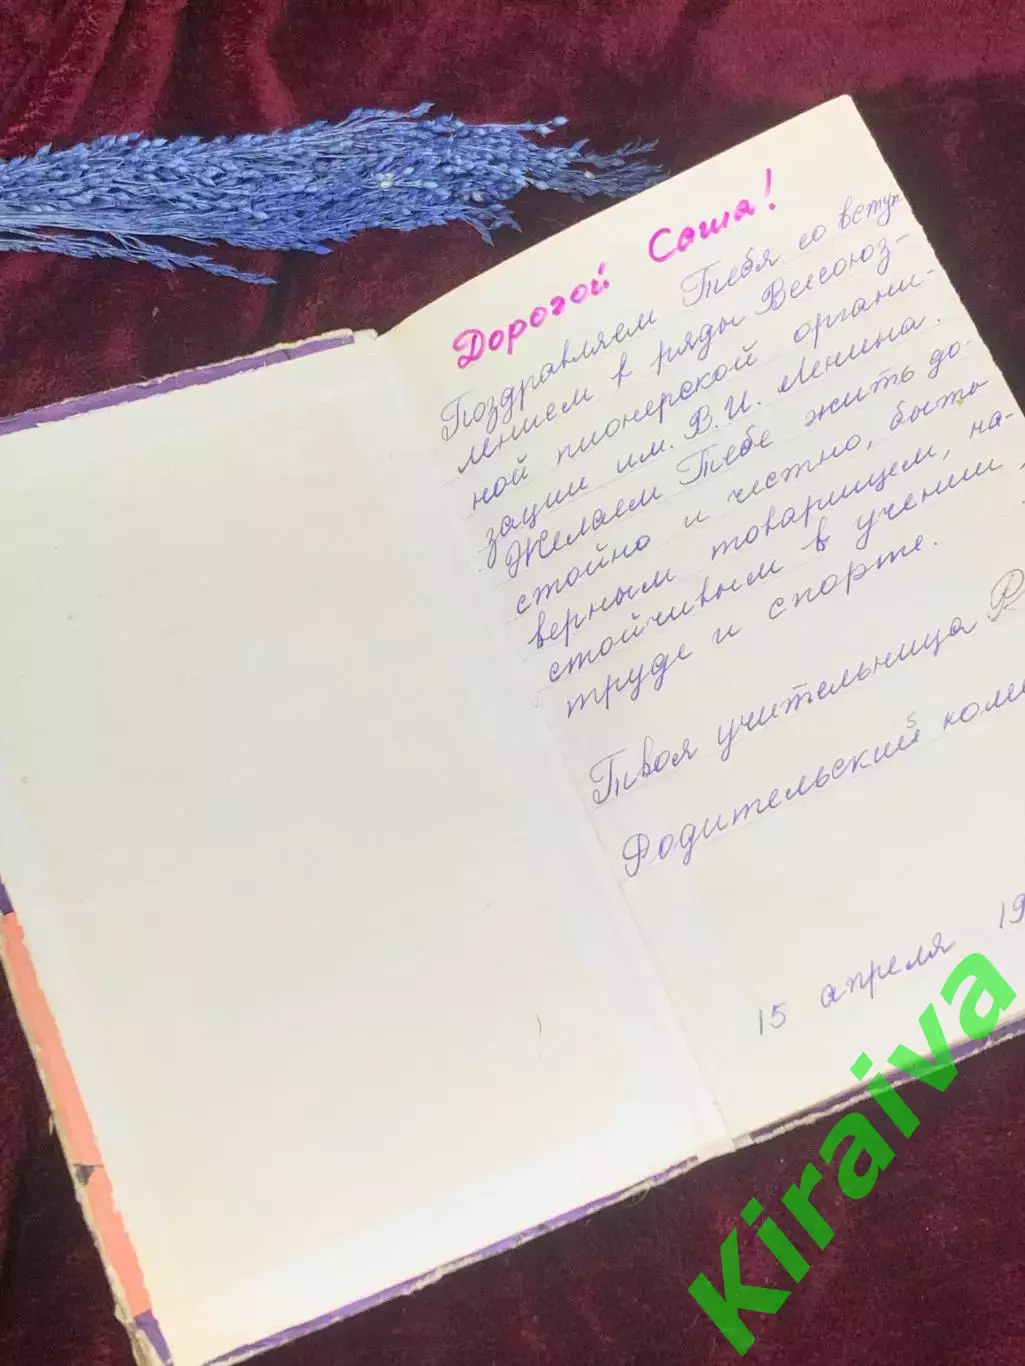 Дорогой Саша!
Поздравляем Тебя со вступ-
лением в ряды Всесоюз-
ной пионерской органи-
зации им. В.И. Ленина.
Желаем Тебе жить до-
стойно и честно, быть
верным товарищем, на-
стойчивым в учении,
труде и спорте.
Твоя учительница
Родительский
15 апреля 19
Kiraiva